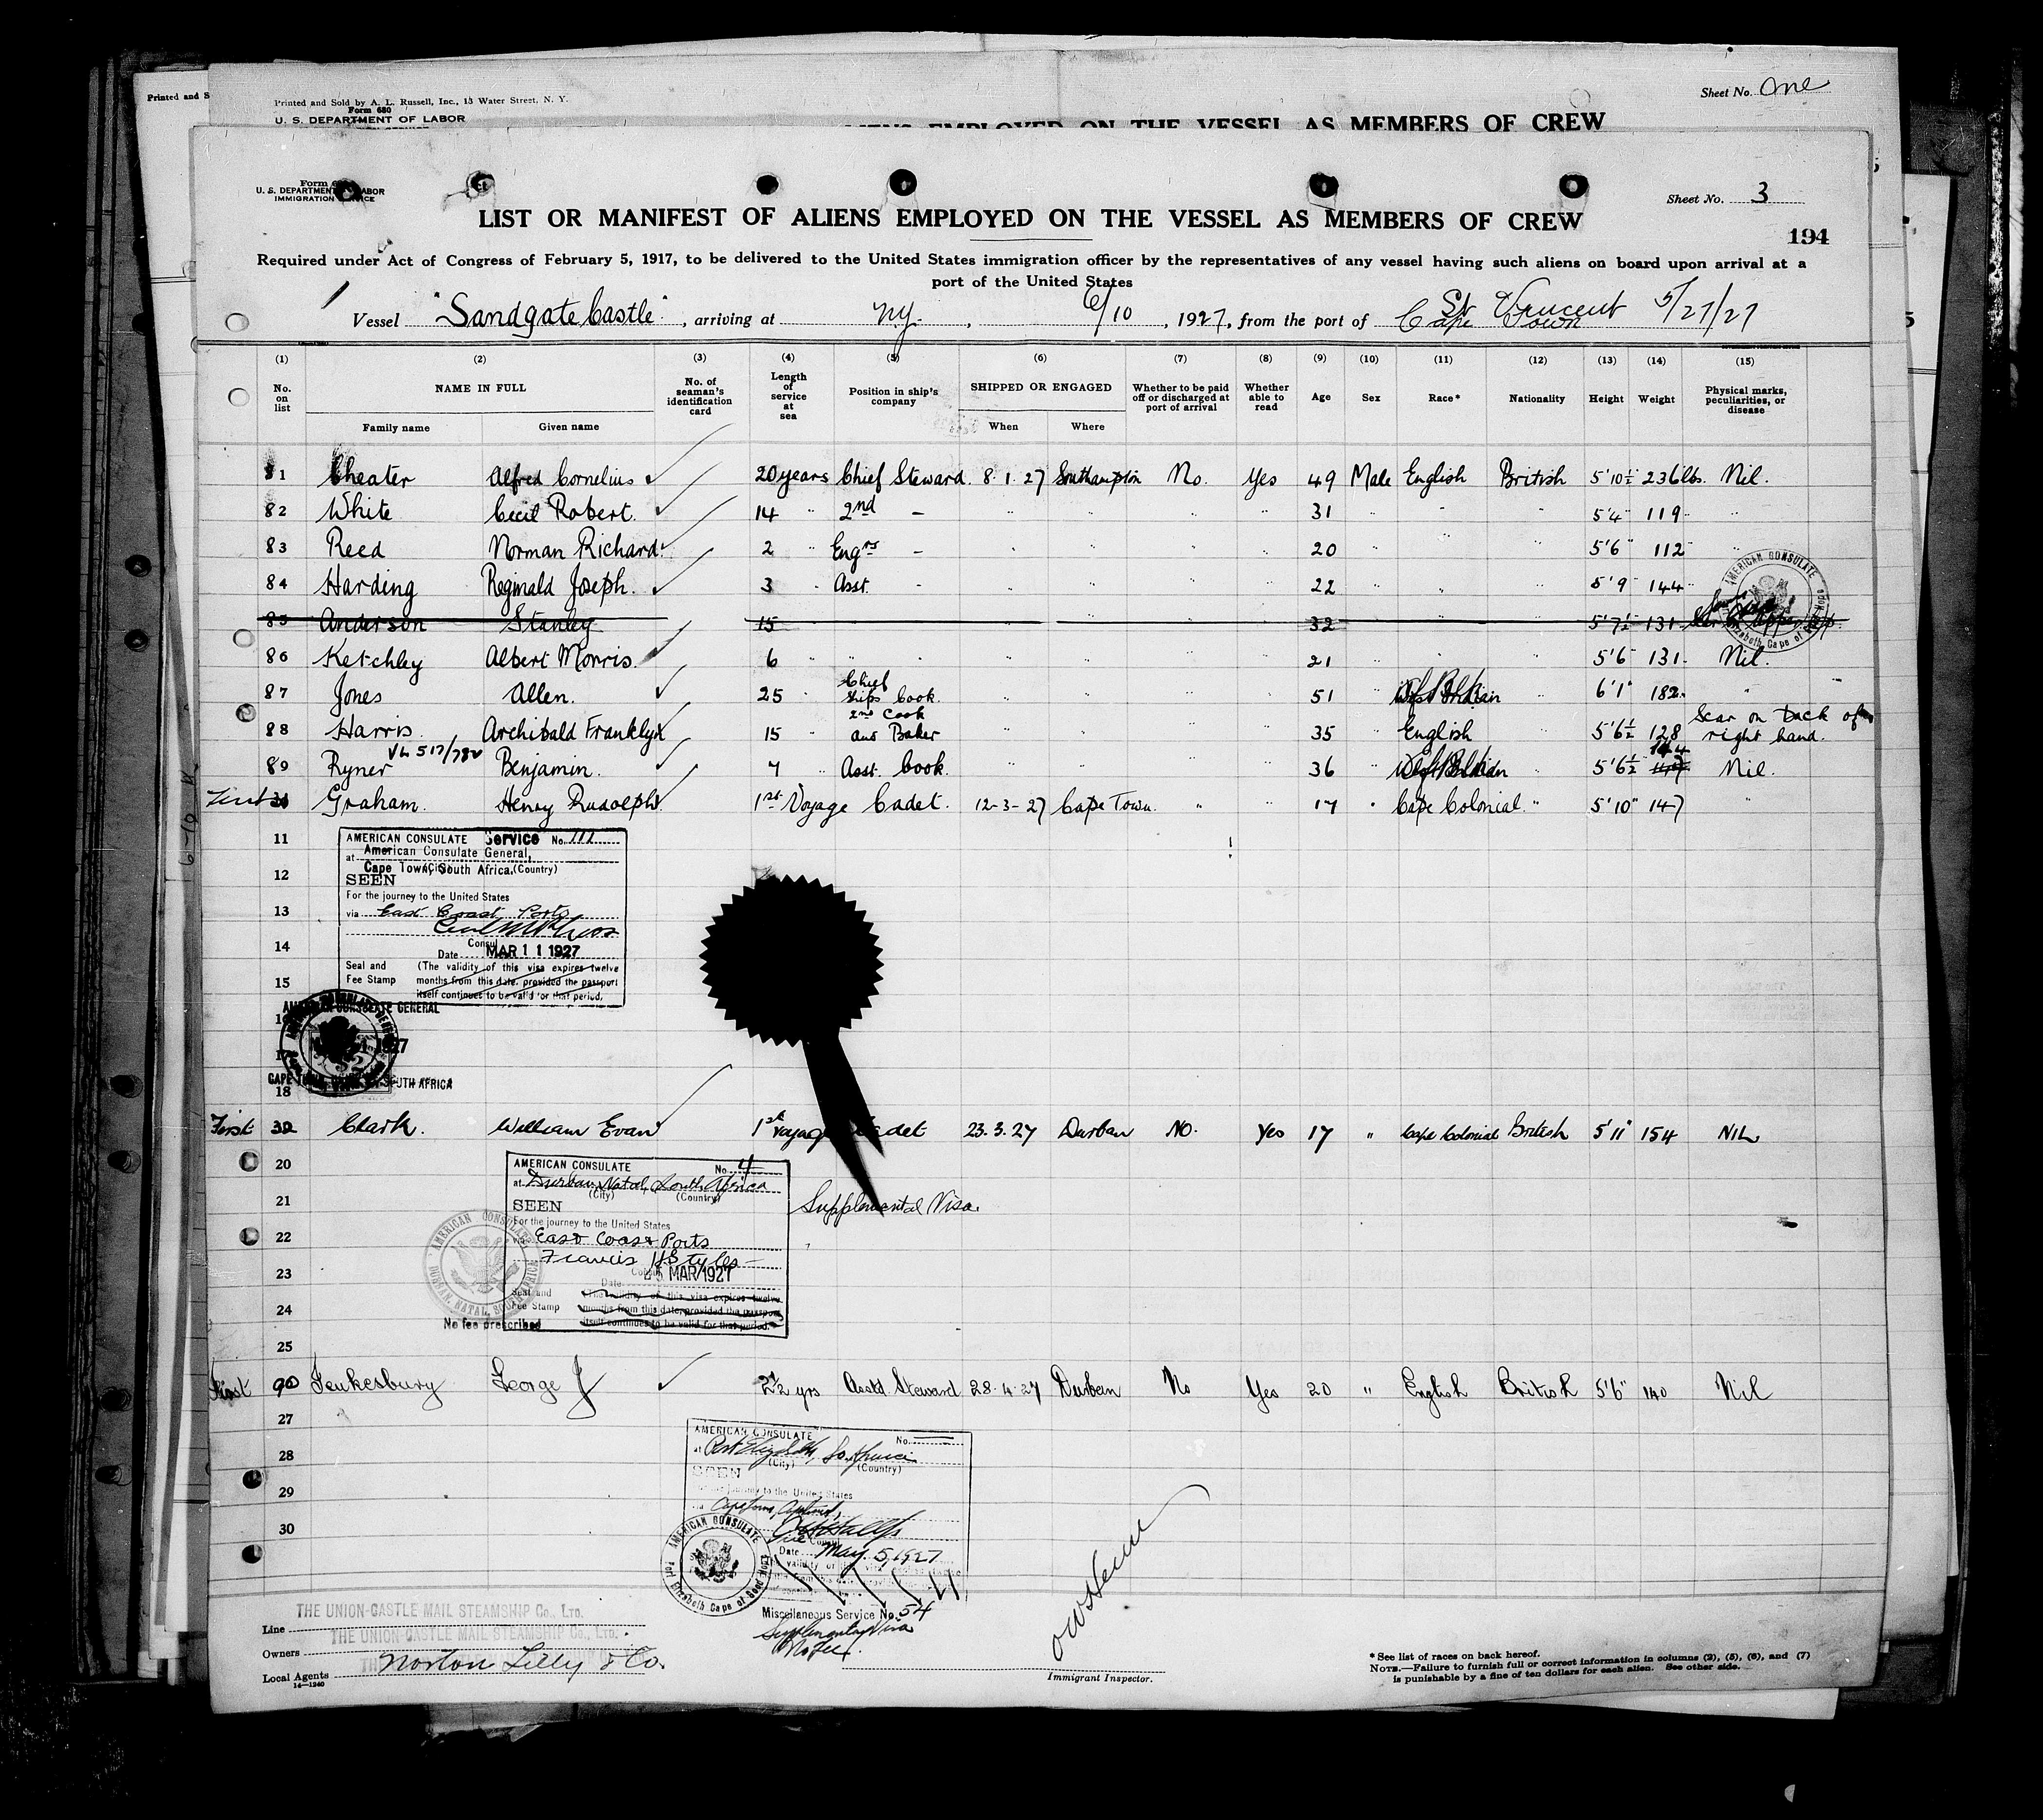 Printed and S
Printed and Sold by A. L. Russell, Inc., 13 Water Street, N. Y.
Form 680
U. S. DEPARTMENT OF LABOR
Sheet No. One
EMPLOYED ON THE VESSEL AS MEMBERS OF CREW
Form
U. S. DEPARTMENT LABOR
IMMIGRATION
Sheet No. 3
LIST OR MANIFEST OF ALIENS EMPLOYED ON THE VESSEL AS MEMBERS OF CREW
194
Required under Act of Congress of February 5, 1917, to be delivered to the United States immigration officer by the representatives of any vessel having such aliens on board upon arrival at a
port of the United States
Vessel "Sandgate Castle", arriving at N.Y., 6/10, 1927, from the port of Cape Town St Vincent 5/27/27
(1) (2) (3) (4) (5) (6) (7) (8) (9) (10) (11) (12) (13) (14) (15)
No. on list NAME IN FULL No. of seaman's identification card Length of service at sea Position in ship's company SHIPPED OR ENGAGED Whether to be paid off or discharged at port of arrival Whether able to read Age Sex Race* Nationality Height Weight Physical marks, peculiarities, or disease
Family name Given name When Where
81 Cheater Alfred Cornelius 20 years Chief Steward. 8.1.27 Southampton No. Yes 49 Male English British 5'10½ 236 lbs. Nil.
82 White Cecil Robert. 14 " 2nd - " " " " 31 " " " 5'4" 119 "
83 Reed Norman Richard. 2 " Engrs - " " " " 20 " " " 5'6" 112 "
84 Harding Reginald Joseph. 3 " Asst. - " " " " 22 " " " 5'9" 144
85 Anderson Stanley 15 32 5'7½ 131
86 Ketchley Albert Morris. 6 " " " " " " 21 " " " 5'6" 131 Nil.
87 Jones Allen. 25 " Chief Ships Cook. " " " " 51 " " 6'1" 182 "
88 Harris Archibald Franklyn 15 2nd Cook and Baker " " " " 35 " English " 5'6½ 128 Scar on back of right hand.
89 Ryner Benjamin. 7 " Asst. Cook. " " " " 36 " " 5'6½" 144 Nil.
Graham. Henry Rudolph. 1st Voyage Cadet. 12-3-27 Cape Town. " " 17 " Cape Colonial. " 5'10" 147 "
11
AMERICAN CONSULATE Service No. 111
at American Consulate General,
12
Cape Town, South Africa. (Country)
SEEN
For the journey to the United States
13
via East Coast Ports
14
Consul
Date MAR 11 1927
Seal and Fee Stamp
(The validity of this visa expires twelve
15
months from this date, provided the passport
itself continues to be valid for that period.
18
First Clark. William Evan 1st Voyage Cadet 23.3.27 Durban NO. Yes 17 " Cape Colonial British 5'11" 154 NIL
20
AMERICAN CONSULATE No. 4
at Durban, Natal, South Africa
(City) (Country)
21
SEEN
Supplemental Visa.
For the journey to the United States
22
East Coast Ports
Francis H Styles
23
MAR 1927
Date
AMERICAN CONSULATE
DURBAN, NATAL, SOUTH AFRICA
Seal and Fee Stamp
(The validity of this visa expires twelve
24
months from this date, provided the passport
itself continues to be valid for that period.
No fee prescribed
25
90 Tewkesbury George J 2½ yrs Asstd Steward 28.4.27 Durban No Yes 20 " English British 5'6" 140 Nil
27
AMERICAN CONSULATE No.
28
at Port Elizabeth, So. Africa
(City) (Country)
SEEN
29
journey to the United States
30
AMERICAN CONSULATE
Port Elizabeth Cape of Good Hope
Vice Consul
Date May 5, 1927
Miscellaneous Service No. 54
Supplementary Visa
No fee.
Line THE UNION-CASTLE MAIL STEAMSHIP Co., LTD.
Owners THE UNION-CASTLE MAIL STEAMSHIP Co., LTD.
Local Agents Norton Lilly & Co.
14—1240
Immigrant Inspector.
* See list of races on back hereof.
NOTE.—Failure to furnish full or correct information in columns (2), (5), (6), and (7)
is punishable by a fine of ten dollars for each alien. See other side.